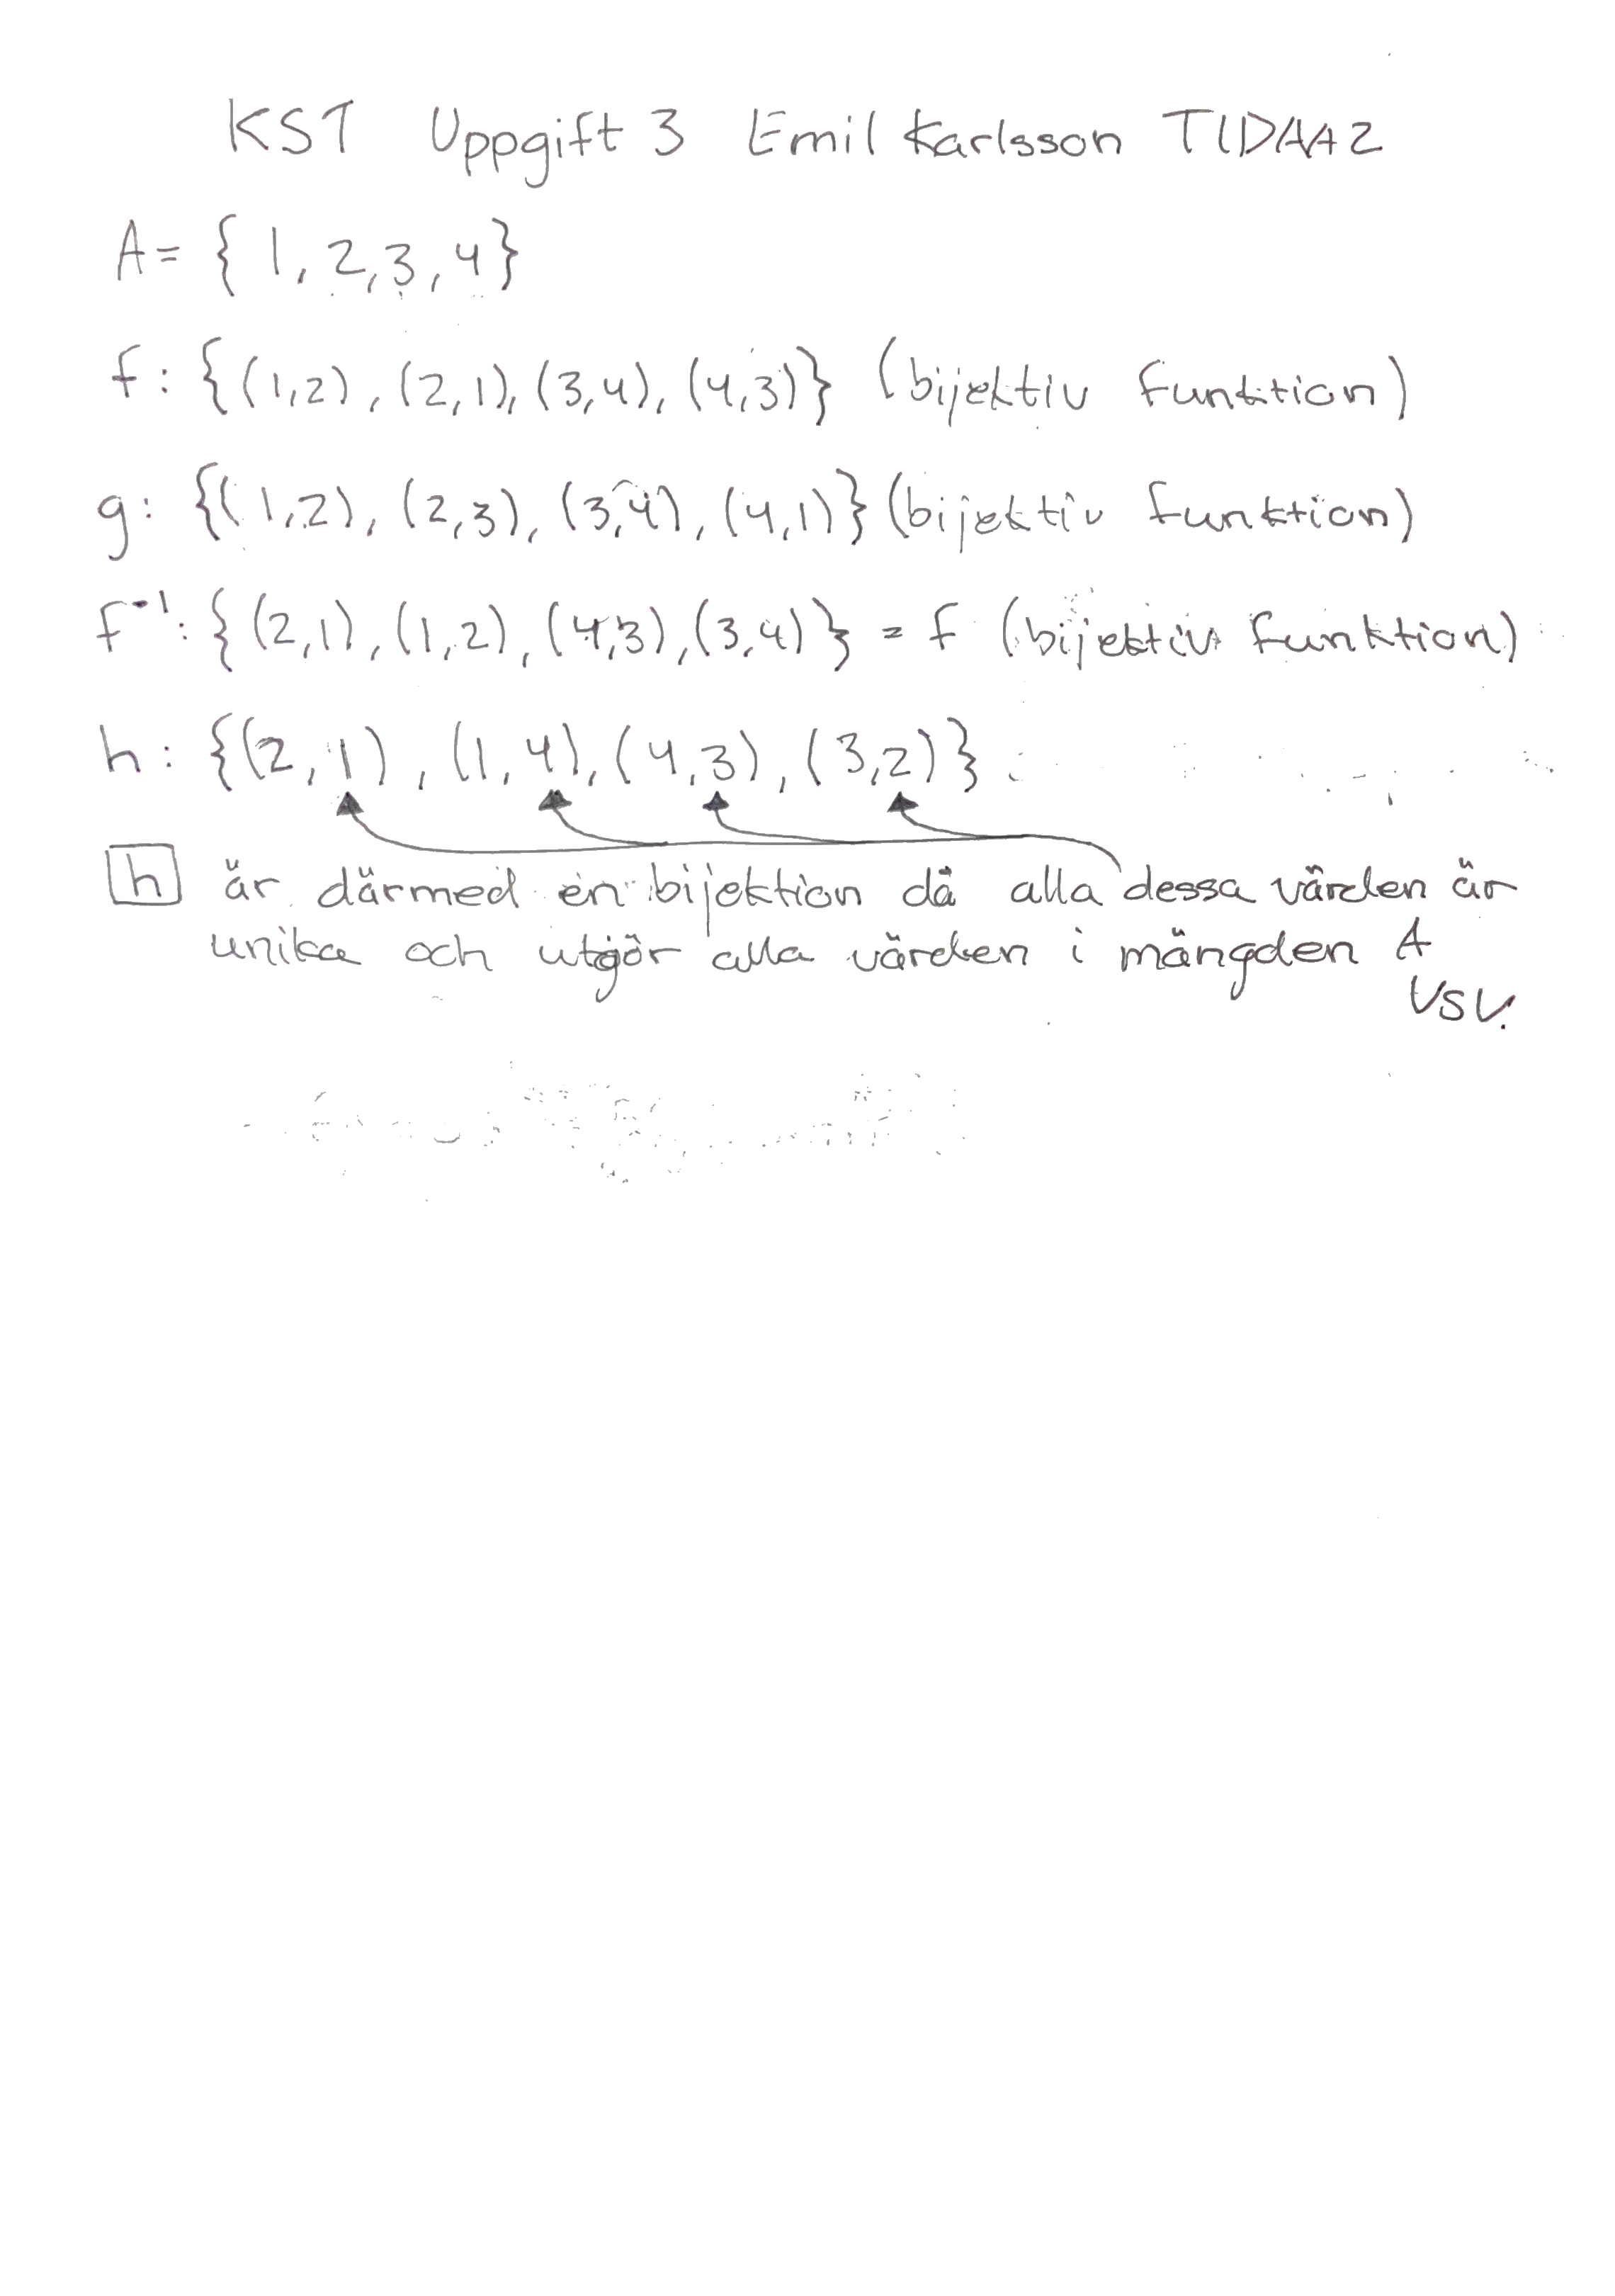 KST Uppgift 3 Emil Karlsson TIDAA2
A= { 1, 2, 3, 4}
f: {(1,2), (2,1), (3,4), (4,3)} (bijektiv funktion)
g: {(1,2), (2,3), (3,4), (4,1)} (bijektiv funktion)
f⁻¹: {(2,1), (1,2), (4,3), (3,4)} = f (bijektiv funktion)
h: {(2,1), (1,4), (4,3), (3,2)}
h är därmed en bijektion då alla dessa värden är
unika och utgör alla värden i mängden A
VSV.